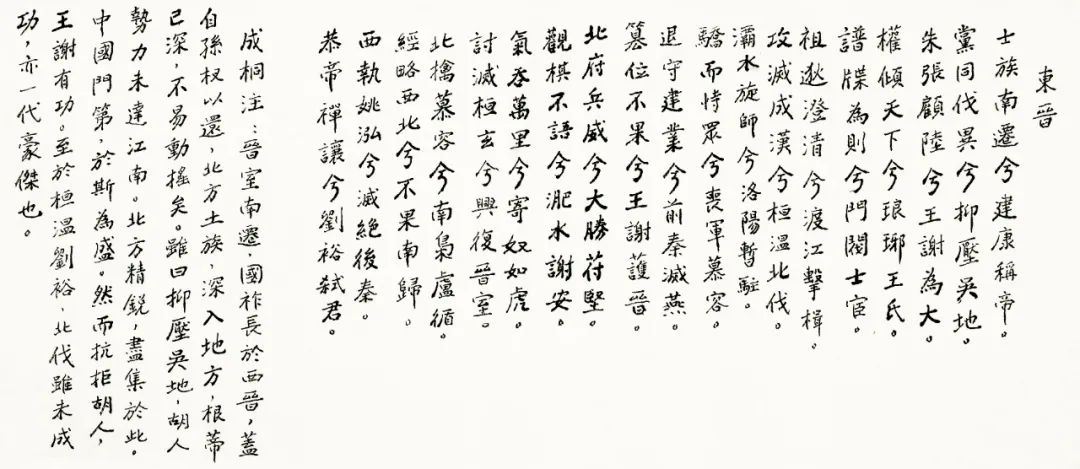 東晉
士族南遷兮建康稱帝。
黨同伐異兮抑壓吳地。
朱張顧陸兮王謝為大。
權傾天下兮琅琊王氏。
譜牒為則兮門閥士宦。
祖逖澄清兮渡江擊楫。
攻滅成漢兮桓溫北伐。
灞水旋師兮洛陽暫駐。
驕而恃眾兮喪軍慕容。
退守建業兮前秦滅燕。
篡位不果兮王謝護晉。
北府兵威兮大勝苻堅。
觀棋不語兮淝水謝安。
氣吞萬里兮寄奴如虎。
討滅桓玄兮興復晉室。
北擒慕容兮南梟盧循。
經略西北兮不果南歸。
西執姚泓兮滅絕後秦。
恭帝禪讓兮劉裕弒君。
成桐注：晉室南遷，國祚長於西晉，蓋
自孫权以還，北方士族，深入地方，根蒂
已深，不易動搖矣。雖曰抑壓吳地，胡人
勢力未達江南。北方精銳，盡集於此。
中國門第，於斯為盛。然而抗拒胡人，
王謝有功。至於桓溫劉裕，北伐雖未成
功，亦一代豪傑也。